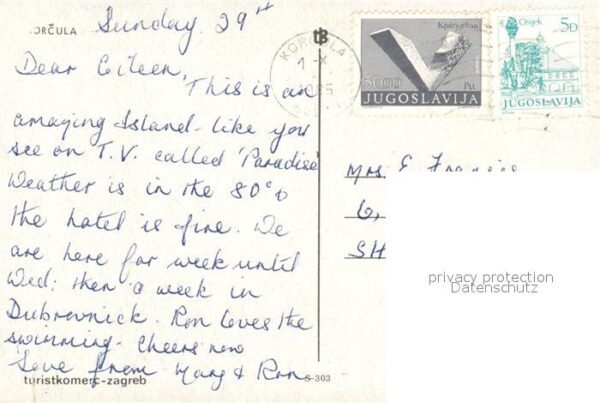 KORČULA
Sunday 29th
Dear Eileen,
This is an
amazing Island - like you
see on T.V. called 'Paradise'
Weather is in the 80°s
the hotel is fine. We
are here for week until
Wed: then a week in
Dubrovnick. Ron loves the
swimming. Cheers now
Love from Marg & Ron.
turistkomerc-zagreb
S-303
KORČULA
1-X
85
Крагујевац
5000
Ptt
JUGOSLAVIJA
Osjek
5D
JUGOSLAVIJA
Mrs. E Francis
6,
SH
privacy protection
Datenschutz